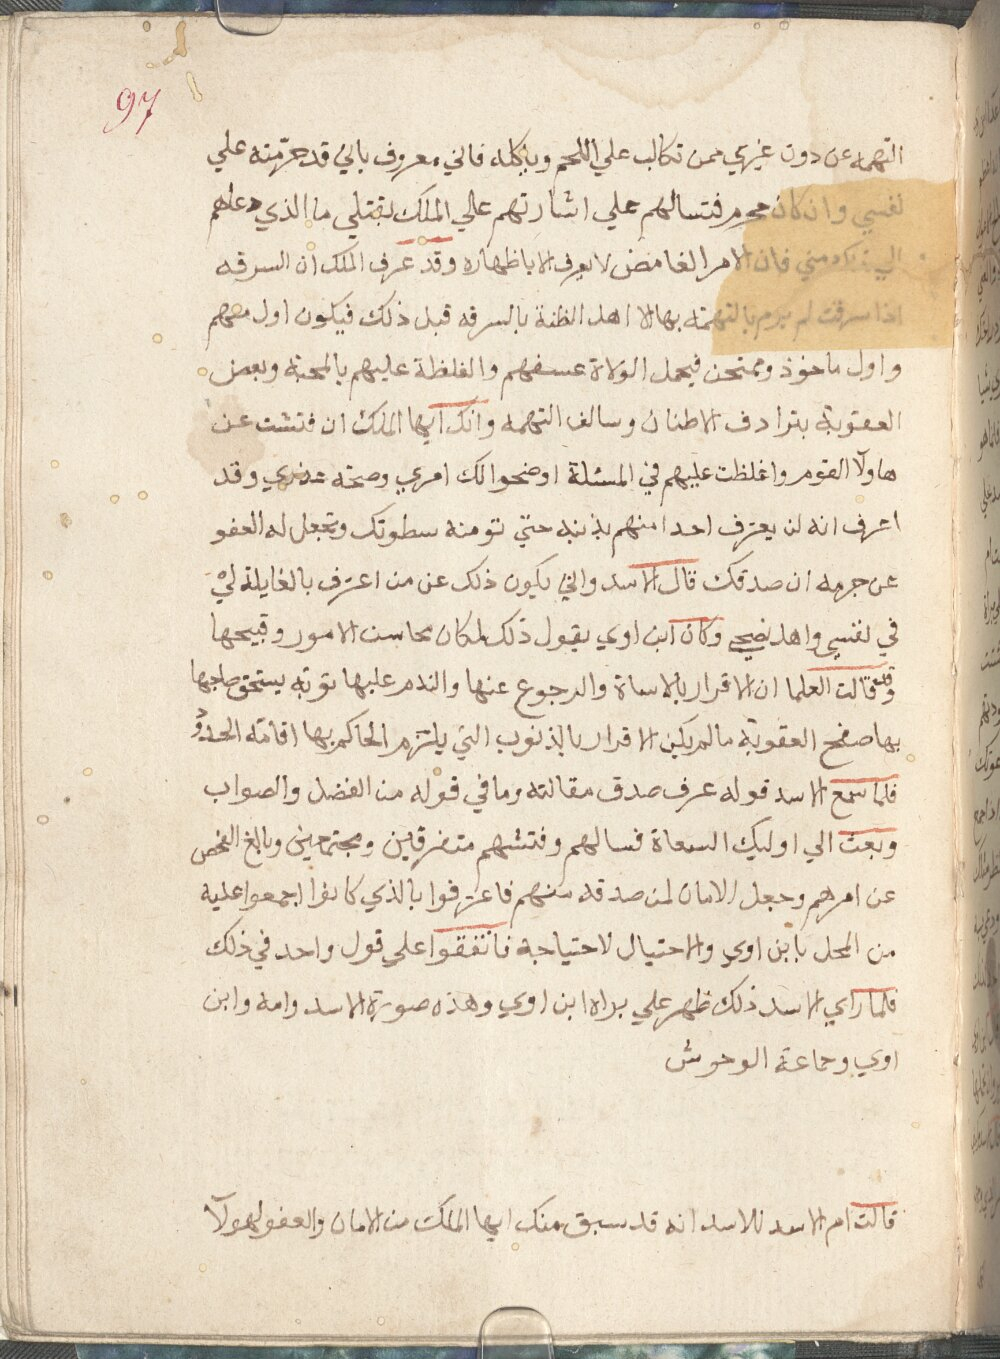 97
التهمه عن دون غيري ممن تكالب علي اللحم وياكله فاني معروف باني قد حرمته علي
نفسي وان كان محرم فتسالهم علي اشارتهم علي الملك بقتلي ما الذي دعاهم
الي مني فان الامر الغامض لا يعرف الا باظهاره وقد عرف الملك ان السرقه
اذا سرقت لم يرم بالتهمته بها الا اهل الظنة بالسرقه قبل ذلك فيكون اول متهم
واول ماخوذ وممتحن فيحمل الولاة عسفهم والغلظة عليهم بالمحنة وبعض
العقوبة بترادف الاظنان وسالف التهمه وانك ايها الملك ان فتشت عن
هاولآ القوم واغلظت عليهم في المسئلة اوضحوا لك امري وصحة عذري وقد
اعرف انه لن يعترف احدا منهم بذنبه حتي تومنه سطوتك وتجعل له العفو
عن جرمه ان صدقك قال الاسد واني يكون ذلك عن من اعترف بالغايلة لي
في نفسي واهل نصيحي وكان ابن اوي يقول ذلك لمكان محاسن الامور وقبيحها
وقد قالت العلما ان الاقرار بالاساة والرجوع عنها والندم عليها توبه يستحق صاحبها
بها صفح العقوبة مالم يكن الاقرار بالذنوب التي يلتزم الحاكم بها اقامة الحدود
فلما سمع الاسد قوله عرف صدق مقالته وما في قوله من الفضل والصواب
وبعث الي اوليك السعاة فسالهم وفتشهم متفرقين ومجتمعين وبالغ الفحص
عن امرهم وجعل الامان لمن صدقه منهم فاعترفوا بالذي كانوا اجمعوا عليه
من المحل بابن اوي والاحتيال لاحتياجة فاتفقوا علي قول واحد في ذلك
فلما راي الاسد ذلك ظهر علي براة ابن اوي وهذه صورة الاسد وامه وابن
اوي وجماعة الوحوش
قالت ام الاسد للاسد انه قد سبق منك ايها الملك من الامان والعفو لهولآ